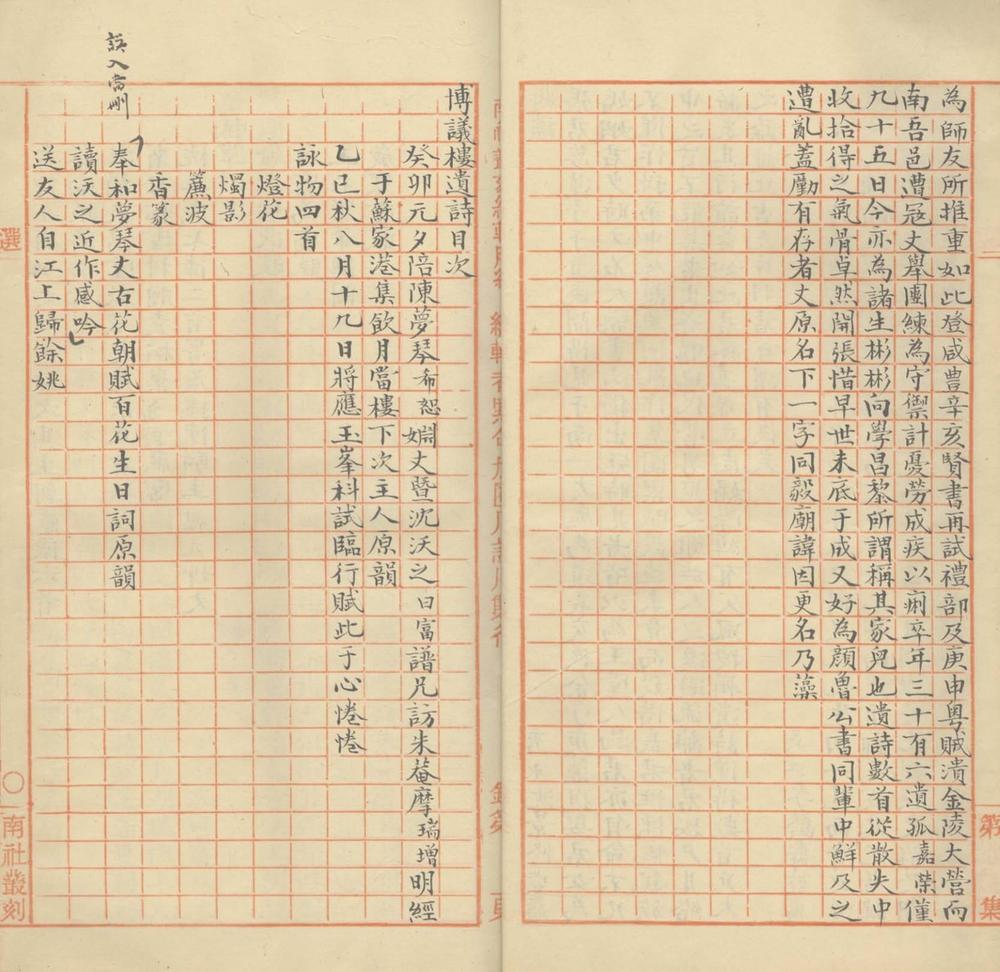 為師友所推重如此登咸豊辛亥賢書再試禮部及庚申粤賊潰金陵大營而
南吾邑遭冦丈舉團練為守禦計憂勞成疾以痢卒年三十有六遺孤嘉榮僅
九十五日今亦為諸生彬彬向學昌黎所謂稱其家皃也遺詩數首從散失中
收拾得之氣骨卓然開張惜早世未底于成又好為顔魯公書同輩中鮮及之
遭亂蓋勵有存者丈原名下一字同毅廟諱因更名乃藻
第
集
博議樓遺詩目次
癸卯元夕陪陳夢琴希恕婣丈暨沈沃之曰富譜兄訪朱菴摩瑞增明經
于蘇家港集飲月當樓下次主人原韻
乙巳秋八月十九日將應玉峯科試臨行賦此于心惓惓
詠物四首
燈花
燭影
簾波
香篆
奉和夢琴丈古花朝賦百花生日詞原韻
讀沃之近作感吟
送友人自江上歸餘姚
誤入當刪
選
〇
南社叢刻